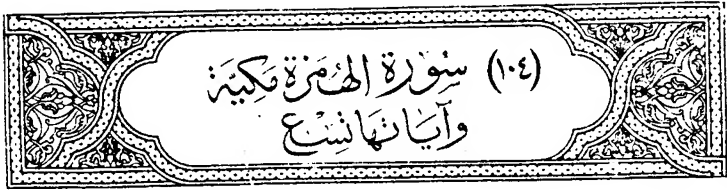 (١٠٤) سُورَة الهُمَزَة مَكِيَّة
وَآيَاتُهَا تِسْع